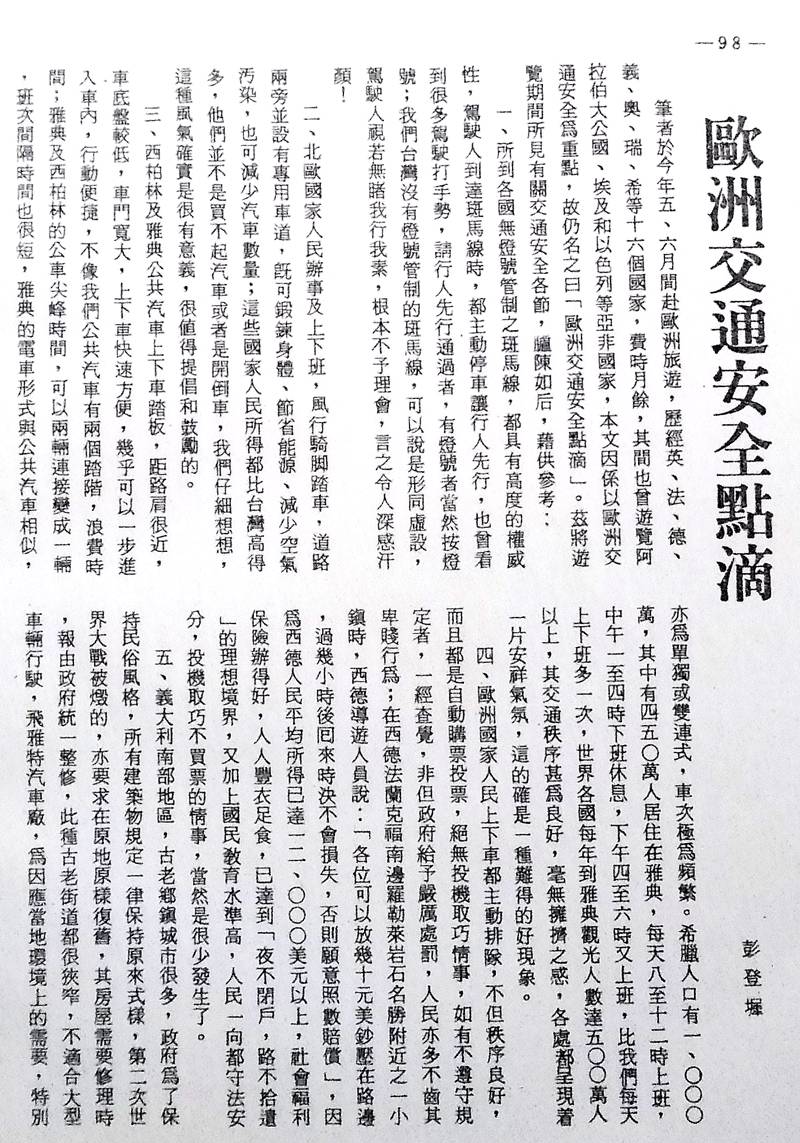 —98—
歐洲交通安全點滴
彭登墀
筆者於今年五、六月間赴歐洲旅遊，歷經英、法、德、
義、奧、瑞、希等十六個國家，費時月餘，其間也曾遊覽阿
拉伯大公國、埃及和以色列等亞非國家，本文因係以歐洲交
通安全爲重點，故仍名之曰「歐洲交通安全點滴」。茲將遊
覽期間所見有關交通安全各節，臚陳如后，藉供參考：
一、所到各國無燈號管制之斑馬線，都具有高度的權威
性，駕駛人到達斑馬線時，都主動停車讓行人先行，也曾看
到很多駕駛打手勢，請行人先行通過者，有燈號者當然按燈
號；我們台灣沒有燈號管制的斑馬線，可以說是形同虛設，
駕駛人視若無睹我行我素，根本不予理會，言之令人深感汗
顏！
二、北歐國家人民辦事及上下班，風行騎脚踏車，道路
兩旁並設有專用車道，旣可鍛鍊身體、節省能源、減少空氣
汚染，也可減少汽車數量；這些國家人民所得都比台灣高得
多，他們並不是買不起汽車或者是開倒車，我們仔細想想，
這種風氣確實是很有意義，很值得提倡和鼓勵的。
三、西柏林及雅典公共汽車上下車踏板，距路肩很近，
車底盤較低，車門寬大，上下車快速方便，幾乎可以一步進
入車內，行動便捷，不像我們公共汽車有兩個踏階，浪費時
間；雅典及西柏林的公車尖峰時間，可以兩輛連接變成一輛
，班次間隔時間也很短，雅典的電車形式與公共汽車相似，
亦爲單獨或雙連式，車次極爲頻繁。希臘人口有一、〇〇〇
萬，其中有四五〇萬人居住在雅典，每天八至十二時上班，
中午一至四時下班休息，下午四至六時又上班，比我們每天
上下班多一次，世界各國每年到雅典觀光人數達五〇〇萬人
以上，其交通秩序甚爲良好，毫無擁擠之感，各處都呈現着
一片安祥氣氛，這的確是一種難得的好現象。
四、歐洲國家人民上下車都主動排隊，不但秩序良好，
而且都是自動購票投票，絕無投機取巧情事，如有不遵守規
定者，一經查覺，非但政府給予嚴厲處罰，人民亦多不齒其
卑賤行爲；在西德法蘭克福南邊羅勒萊岩石名勝附近之一小
鎮時，西德導遊人員說：「各位可以放幾十元美鈔壓在路邊
，過幾小時後囘來時決不會損失，否則願意照數賠償」，因
爲西德人民平均所得已達一二、〇〇〇美元以上，社會福利
保險辦得好，人人豐衣足食，已達到「夜不閉戶，路不拾遺
」的理想境界，又加上國民教育水準高，人民一向都守法安
分，投機取巧不買票的情事，當然是很少發生了。
五、義大利南部地區，古老鄉鎮城市很多，政府爲了保
持民俗風格，所有建築物規定一律保持原來式樣，第二次世
界大戰被燬的，亦要求在原地原樣復舊，其房屋需要修理時
，報由政府統一整修，此種古老街道都很狹窄，不適合大型
車輛行駛，飛雅特汽車廠，爲因應當地環境上的需要，特別